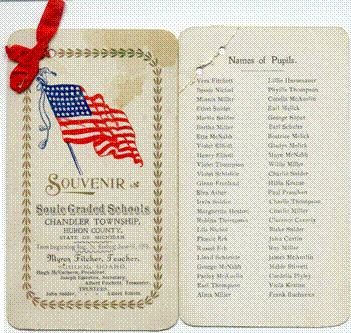 SOUVENIR
Soule Graded Schools
CHANDLER TOWNSHIP,
HURON COUNTY,
STATE OF MICHIGAN.
Myron Fitcher, Teacher.
SCHOOL BOARD
Hugh McEachern, President.
Joseph Epletrey, Secretary.
Albert Fischett, Treasurer.
TRUSTEES
John Snider
Names of Pupils.
Vera Fitchett
Bessie Nichol
Minnie Miller
Ethel Snider
Martin Snider
Bertha Miller
Etta McNabb
Violet Elliott
Henry Elliott
Violet Thompson
Violet Schieline
Glenn Freeland
Elva Asher
Irvin Snider
Margaretta Heaton
Robina Thompson
Lila Richie
Phoebe Erb
Russel Erb
Lloyd Schieline
George McNabb
Packy McAuslin
Earl Thompson
Alma Miller
Lillie Hunsanger
Phyllis Thompson
Coralla McAuslin
Earl Mellick
George Soper
Earl Schultz
Beatrice Mellick
Gladys Mellick
Maye McNabb
Willie Miller
Charlie Snider
Hilda Krause
Paul Fraughart
Charlie Thompson
Charlie Miller
Clarence Conerty
Blake Snider
John Curtin
Roy Miller
James McAuslin
Mable Stivett
Cordella Plyley
Viola Krause
Frank Buchanan